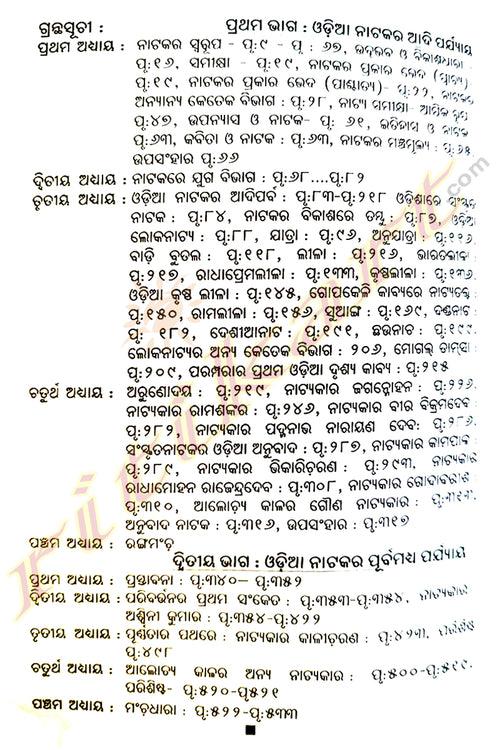 ଗ୍ରନ୍ଥସୂଚୀ : ପ୍ରଥମ ଭାଗ : ଓଡ଼ିଆ ନାଟକର ଆଦି ପର୍ଯ୍ୟାୟ
ପ୍ରଥମ ଅଧ୍ୟାୟ : ନାଟକର ସ୍ୱରୂପ - ପୃ:୯ - ପୃ : ୬୭, ଉଦ୍ଭବ ଓ ବିକାଶଧାରା -
ପୃ:୧୬, ସମୀକ୍ଷା - ପୃ:୧୯, ନାଟକର ପ୍ରକାର ଭେଦ (ପ୍ରାଚ୍ୟ)-
ପୃ:୧୯, ନାଟକର ପ୍ରକାର ଭେଦ (ପାଶ୍ଚାତ୍ୟ)- ପୃ:୨୨, ନାଟକର
ଅନ୍ୟାନ୍ୟ କେତେକ ବିଭାଗ : ପୃ:୨୮, ନାଟ୍ୟ ସମୀକ୍ଷା-
ପୃ:୪୭, ଉପନ୍ୟାସ ଓ ନାଟକ- ପୃ: ୬୧, ଇତିହାସ ଓ ନାଟକ
ପୃ:୬୩, କବିତା ଓ ନାଟକ : ପୃ:୬୩, ନାଟକର ମଞ୍ଚମୂଲ୍ୟ : ପୃ:୬୫
ଉପସଂହାର ପୃ:୬୬
ଦ୍ୱିତୀୟ ଅଧ୍ୟାୟ : ନାଟକରେ ଯୁଗ ବିଭାଗ : ପୃ:୬୮....ପୃ:୮୨
ତୃତୀୟ ଅଧ୍ୟାୟ : ଓଡ଼ିଆ ନାଟକର ଆଦିପର୍ବ : ପୃ:୮୩-ପୃ:୨୧୮ ଓଡ଼ିଶାରେ ସଂସ୍କୃତ
ନାଟକ : ପୃ:୮୪, ନାଟକର ବିକାଶରେ ଡମ୍ଫୁ : ପୃ:୮୭, ଓଡ଼ିଆ
ଲୋକନାଟ୍ୟ : ପୃ:୮୮, ଯାତ୍ରା : ପୃ:୯୬, ଅନୁଯାତ୍ରା : ପୃ:୧୧୬
ବାଡ଼ି ବୁତଲ : ପୃ:୧୧୮, ଲୀଳା : ପୃ:୨୧୬, ଭାରତଲୀଳା :
ପୃ:୨୧୭, ରାଧାପ୍ରେମଲୀଳା : ପୃ:୧୩୩, କୃଷ୍ଣଲୀଳା : ପୃ:୧୩୬.
ଓଡ଼ିଆ କୃଷ୍ଣ ଲୀଳା : ପୃ:୧୪୫, ଗୋପକେଳି କାବ୍ୟରେ ନାଟ୍ୟତତ୍ତ୍ୱ :
ପୃ:୧୫୦, ରାମଲୀଳା : ପୃ:୧୫୬, ସୁଆଙ୍ଗ : ପୃ:୧୬୯, ଦଣ୍ଡନାଟ :
ପୃ: ୧୮୨, ଦେଶୀଆନାଟ : ପୃ:୧୯୧, ଛଉନାଚ : ପୃ:୧୯୯.
ଲୋକନାଟ୍ୟର ଅନ୍ୟ କେତେକ ବିଭାଗ : ୨୦୬, ମୋଗଲ୍ ତାମ୍ସା :
ପୃ:୨୦୯, ପରମ୍ପରାର ପ୍ରଥମ ଓଡ଼ିଆ ଦୃଶ୍ୟ କାବ୍ୟ : ପୃ:୨୧୫
ଚତୁର୍ଥ ଅଧ୍ୟାୟ : ଅରୁଣୋଦୟ : ପୃ:୨୧୯, ନାଟ୍ୟକାର ଜଗନ୍ମୋହନ : ପୃ:୨୨୬.
ନାଟ୍ୟକାର ରାମଶଙ୍କର : ପୃ:୨୪୬, ନାଟ୍ୟକାର ବୀର ବିକ୍ରମଦେବ :
ପୃ:୨୮୨, ନାଟ୍ୟକାର ପଦ୍ମନାଭ ନାରାୟଣ ଦେବ: ପୃ:୨୮୬.
ସଂସ୍କୃତନାଟକର ଓଡ଼ିଆ ଅନୁବାଦ : ପୃ:୨୮୭, ନାଟ୍ୟକାର କାମପାଳ :
ପୃ:୨୮୯, ନାଟ୍ୟକାର ଭିକାରିଚରଣ : ପୃ:୨୯୩, ନାଟ୍ୟକାର
ରାଧାମୋହନ ରାଜେନ୍ଦ୍ରଦେବ : ପୃ:୩୦୮, ନାଟ୍ୟକାର ଗୋଦାବରୀଶ
ପୃ:୩୧୦, ଆଲୋଚ୍ୟ କାଳର ଗୌଣ ନାଟ୍ୟକାର : ପୃ:୩୧୩.
ଅନୁବାଦ ନାଟକ : ପୃ:୩୧୬, ଉପସଂହାର : ପୃ:୩୧୭
ପଞ୍ଚମ ଅଧ୍ୟାୟ : ରଙ୍ଗମଂଚ
ଦ୍ୱିତୀୟ ଭାଗ : ଓଡ଼ିଆ ନାଟକର ପୂର୍ବମଧ୍ୟ ପର୍ଯ୍ୟାୟ
ପ୍ରଥମ ଅଧ୍ୟାୟ : ପ୍ରସ୍ତାବନା : ପୃ:୩୪୦- ପୃ:୩୫୨
ଦ୍ୱିତୀୟ ଅଧ୍ୟାୟ : ପରିବର୍ତ୍ତନର ପ୍ରଥମ ସଂକେତ : ପୃ:୩୫୩-ପୃ:୩୫୪, ନାଟ୍ୟକାର
ଅଶ୍ୱିନୀ କୁମାର : ପୃ:୩୫୪-ପୃ:୪୨୨
ତୃତୀୟ ଅଧ୍ୟାୟ : ପୂର୍ଣ୍ଣତାର ପଥରେ : ନାଟ୍ୟକାର କାଳୀଚରଣ : ପୃ:୪୨୩, ପରିଶିଷ୍ଟ
ପୃ:୪୯୮
ଚତୁର୍ଥ ଅଧ୍ୟାୟ : ଆଲୋଚ୍ୟ କାଳର ଅନ୍ୟ ନାଟ୍ୟକାର : ପୃ:୫୦୦-ପୃ:୫୧୯.
ପରିଶିଷ୍ଟ- ପୃ:୫୨୦-ପୃ୫୨୧
ପଞ୍ଚମ ଅଧ୍ୟାୟ : ମଂଚଧାରା : ପୃ:୫୨୨-ପୃ:୫୩୩